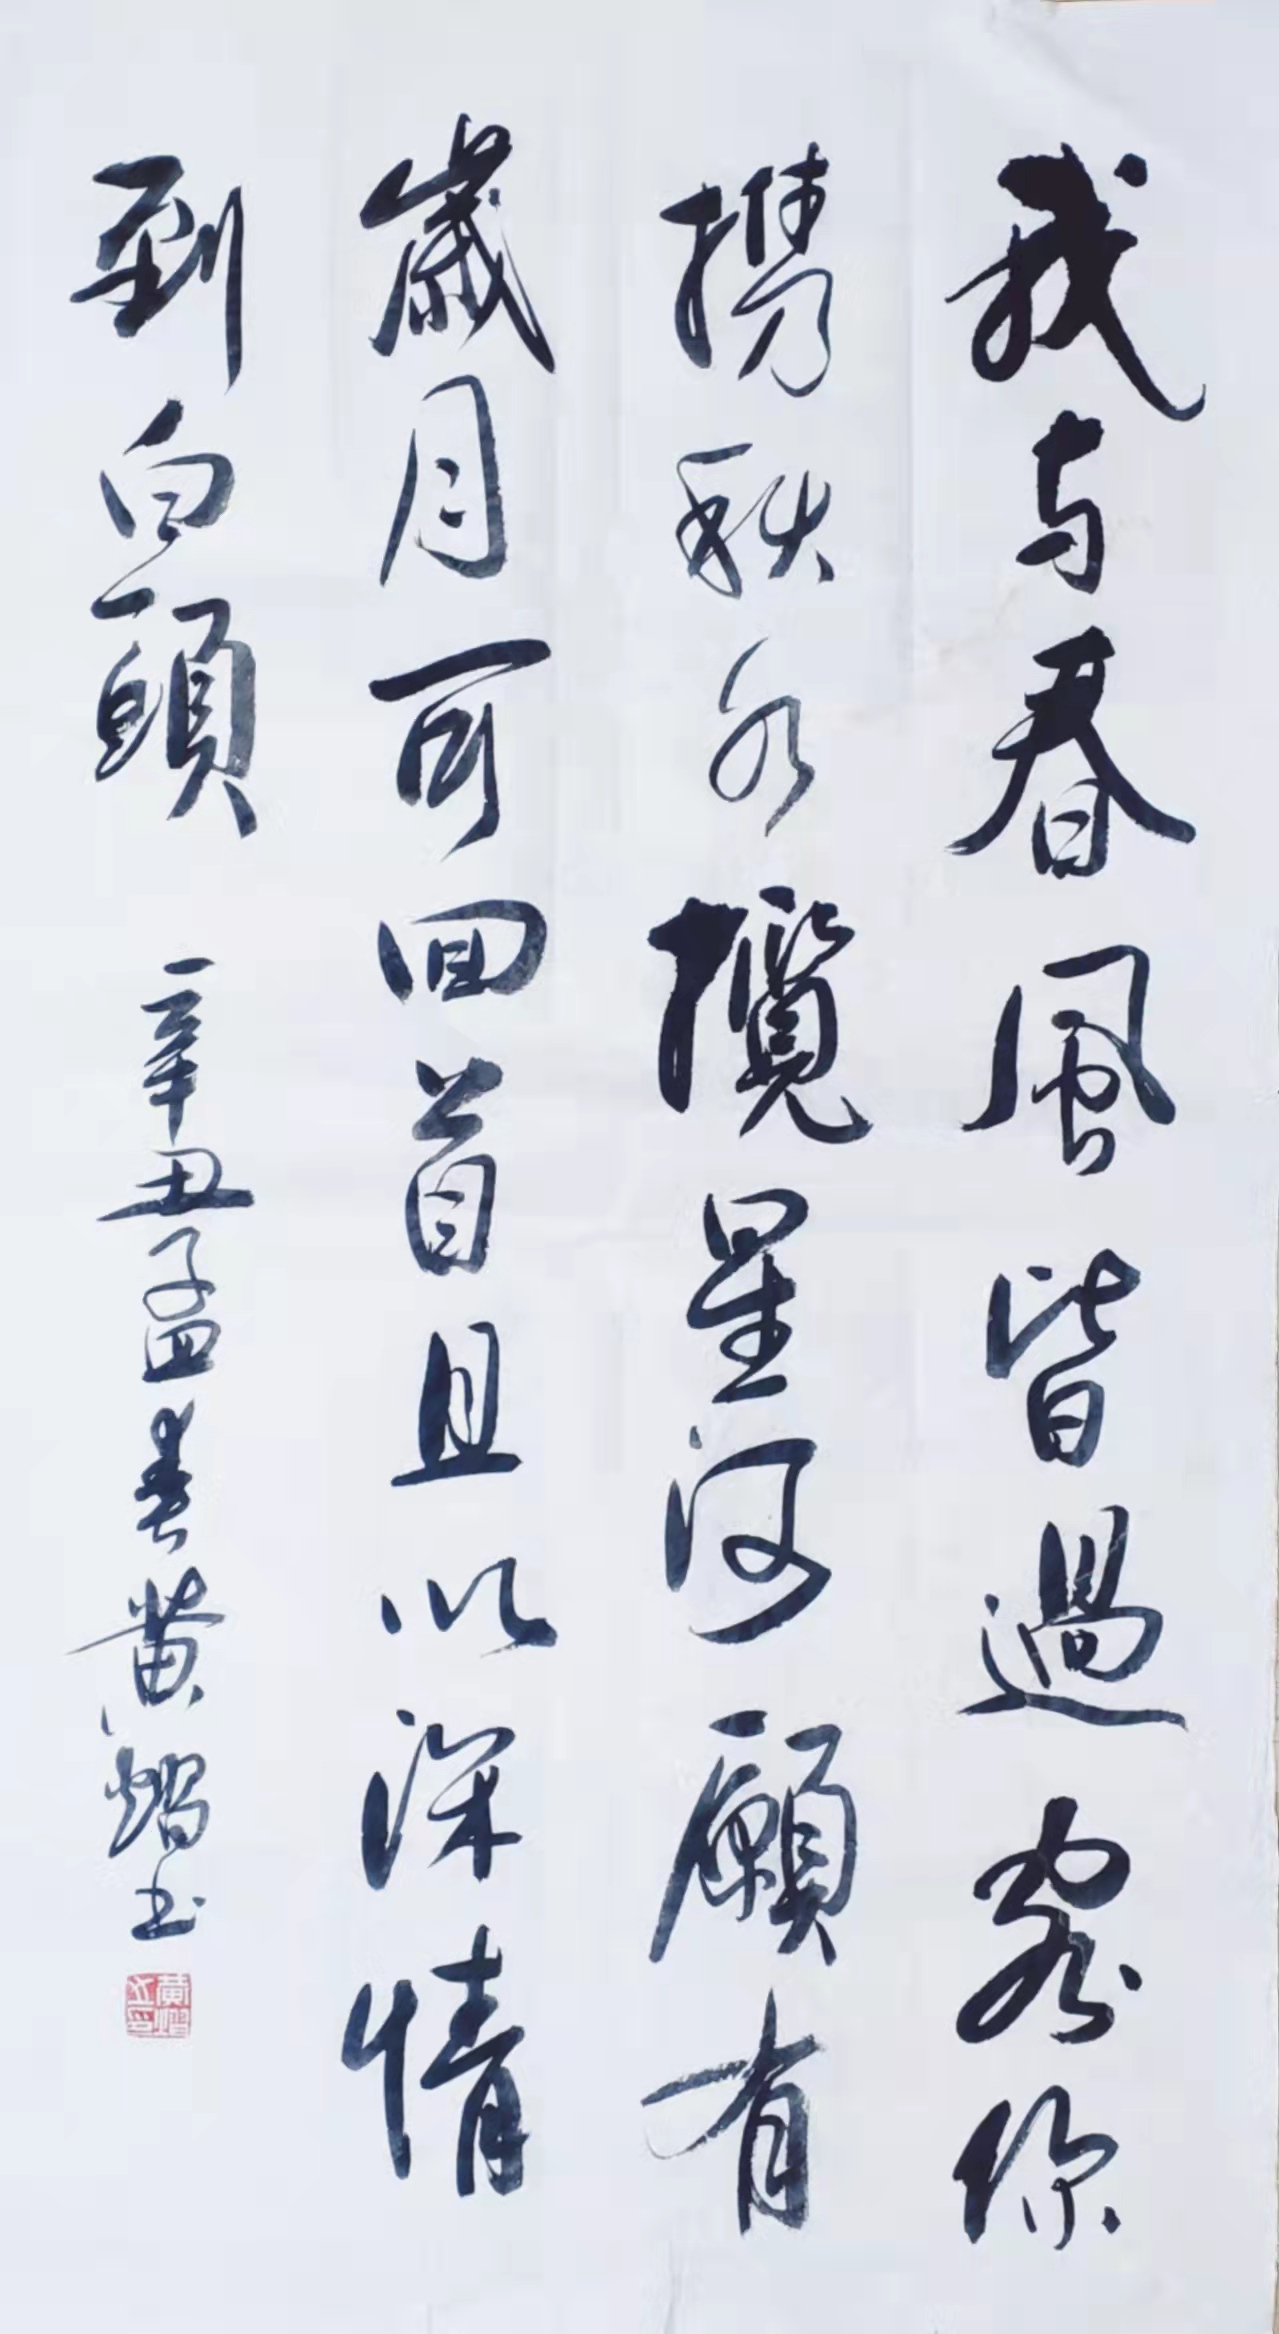 我与春風皆過客你
携秋水攬星河願有
歲月可回首且以深情
到白頭 辛丑孟春黄熠书